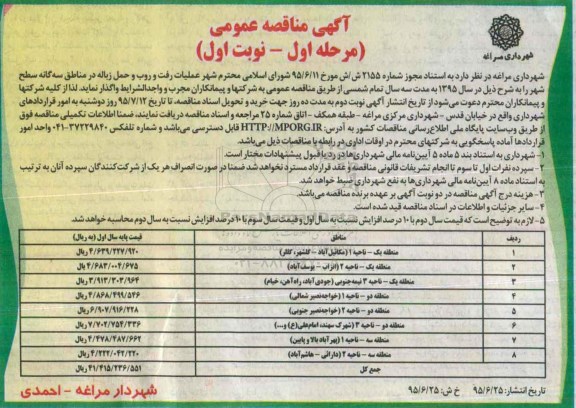 آگهی مناقصه عمومی
(مرحله اول - نوبت اول)
شهرداری مراغه
شهرداری مراغه در نظر دارد به استناد مجوز شماره ۲۱۵۵ ش/ش مورخ ۹۵/۶/۱۱ شورای اسلامی محترم شهر عملیات رفت و روب و حمل زباله در مناطق سه‌گانه سطح
شهر را به شرح ذیل در سال ۱۳۹۵ به مدت سه سال تمام شمسی از طریق مناقصه عمومی به شرکتها و پیمانکاران مجرب و واجدالشرایط واگذار نماید. لذا از کلیه شرکتها
و پیمانکاران محترم دعوت می‌شود از تاریخ انتشار آگهی نوبت دوم به مدت ده روز جهت خرید و تحویل اسناد مناقصه، تا تاریخ ۹۵/۷/۱۲ روز دوشنبه به امور قراردادهای
شهرداری واقع در خیابان قدس - شهرداری مرکزی مراغه - طبقه همکف - اتاق شماره ۲۵ مراجعه و اسناد مناقصه دریافت نمایند، ضمنا اطلاعات تکمیلی مناقصه فوق
از طریق وب‌سایت پایگاه ملی اطلاع‌رسانی مناقصات کشور به آدرس: HTTP://MPORG.IR قابل دسترسی می‌باشد و شماره تلفکس ۳۷۲۲۹۸۴۰-۰۴۱ واحد امور
قراردادها آماده پاسخگویی به شرکتهای محترم در اوقات اداری در رابطه با مناقصات ذیل می‌باشد.
۱- شهرداری به استناد بند ۵ ماده ۵ آیین‌نامه مالی شهرداری‌ها در رد یا قبول پیشنهادات مختار است.
۲- سپرده نفرات اول تا سوم تا انجام تشریفات قانونی مناقصه و عقد قرارداد مسترد نخواهد شد ضمنا در صورت انصراف هر یک از شرکت‌کنندگان سپرده آنان به ترتیب
به استناد ماده ۸ آیین‌نامه مالی شهرداری‌ها به نفع شهرداری ضبط خواهد شد.
۳- هزینه درج آگهی مناقصه در دو نوبت آگهی بر عهده برنده مناقصه می‌باشد.
۴- سایر جزئیات و اطلاعات در اسناد مناقصه قید شده است.
۵- لازم به توضیح است که قیمت سال دوم با ۱۰ درصد افزایش نسبت به سال اول و قیمت سال سوم با ۱۰ درصد افزایش نسبت به سال دوم محاسبه خواهد شد.
ردیف مناطق قیمت پایه سال اول (به ریال)
۱ منطقه یک - ناحیه ۱ (مکائیل‌آباد - گلشهر، کلار) ۴/۶۳۹/۲۲۷/۹۲۰ ریال
۲ منطقه یک - ناحیه ۲ (اتراب - یوسف‌آباد) ۴/۶۸۳/۰۰۴/۶۷۵ ریال
۳ منطقه یک - ناحیه ۳ نیمه‌جنوبی (جودی‌آباد، راه‌آهن، خیام) ۳/۹۱۳/۳۰۳/۹۶۴ ریال
۴ منطقه دو - ناحیه ۱ (خواجه‌نصیر شمالی) ۴/۸۶۸/۴۹۹/۵۲۶ ریال
۵ منطقه دو - ناحیه ۲ (خواجه‌نصیر جنوبی) ۶/۹۰۷/۹۱۶/۲۲۸ ریال
۶ منطقه دو - ناحیه ۳ (شهرک سهند، امام‌علی(ع) و...) ۷/۷۰۲/۷۵۴/۳۳۶ ریال
۷ منطقه سه - ناحیه ۱ (پهرآباد بالا و پایین) ۴/۴۷۸/۴۸۷/۶۶۲ ریال
۸ منطقه سه - ناحیه ۲ (دارائی - هاشم‌آباد) ۴/۲۲۲/۰۴۲/۲۲۰ ریال
جمع کل ۴۱/۴۱۵/۲۳۶/۵۵۱ ریال
تاریخ انتشار: ۹۵/۶/۲۵ خ ش: ۹۵/۶/۲۵
شهردار مراغه - احمدی